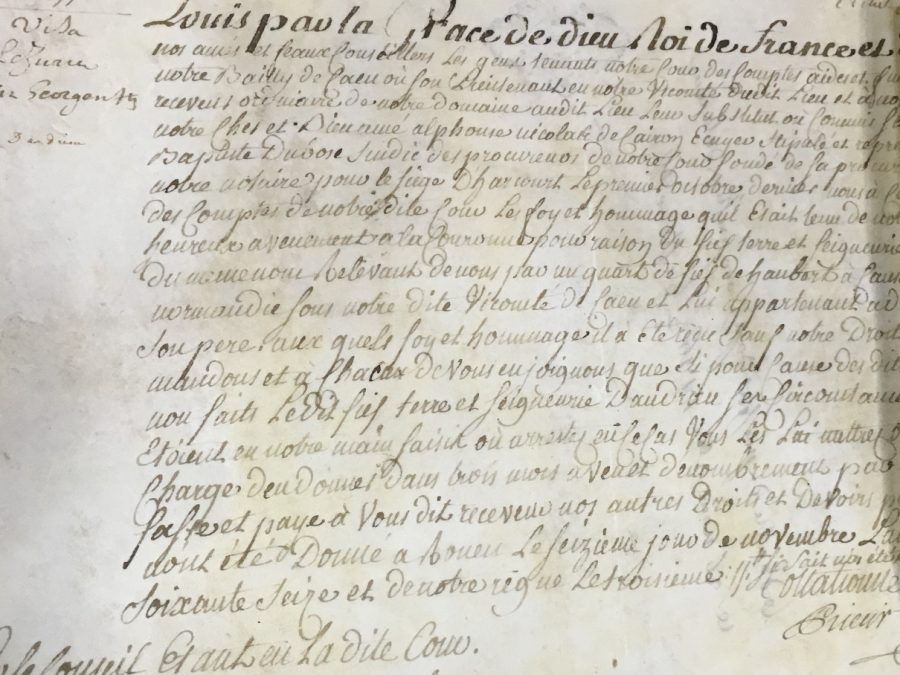 Visa
Louis par la Grace de dieu Roi de France et
nos amés et feaux Conseillers Les gens tenants notre Cour des Comptes aides et
notre Baillif de Caen ou son Lieutenant en notre Vicomté dudit Lieu et à
receveur ordinaire de notre domaine audit Lieu Leur Substitut ou Commis
notre Cher et Bien amé alphonse nicolas de Cairon Ecuyer Stipulé et
Baptiste Dubosc Sindic des procureurs de notre Cour fondé de Sa
notre notaire pour le siege Dharcourt Le premier octobre dernier nous à
des Comptes de notre dite Cour Les foy et hommage quil Etait tenu de
heureux avenement a la Couronne pour raison du fief terre et Seigneurie
du meme nom Relevant de nous par un quart de fief de haubert à
normandie sous notre dite Vicomté de Caen et Lui appartenant
Son pere aux quels foy et hommage il a Eté reçu Sauf notre Droit
mandons et à Chacun de Vous enjoignons que Si pour Cause des dit
non faits Le dit fief terre et Seigneurie Daudrieu Ses Circonstances
Etoient en notre main Saisis ou arrestés en ce Cas Vous Les Lui mettres
Charge den donner dans trois mois aveu et denombrement
fasse et paye à Vous dit receveur nos autres Droits et Devoirs
nont été Donné a Rouen Le Seizieme jour de novembre
Soixante Seize et de notre règne Le troisieme Collationné
Prieur
Conseil Etant en La dite Cour.